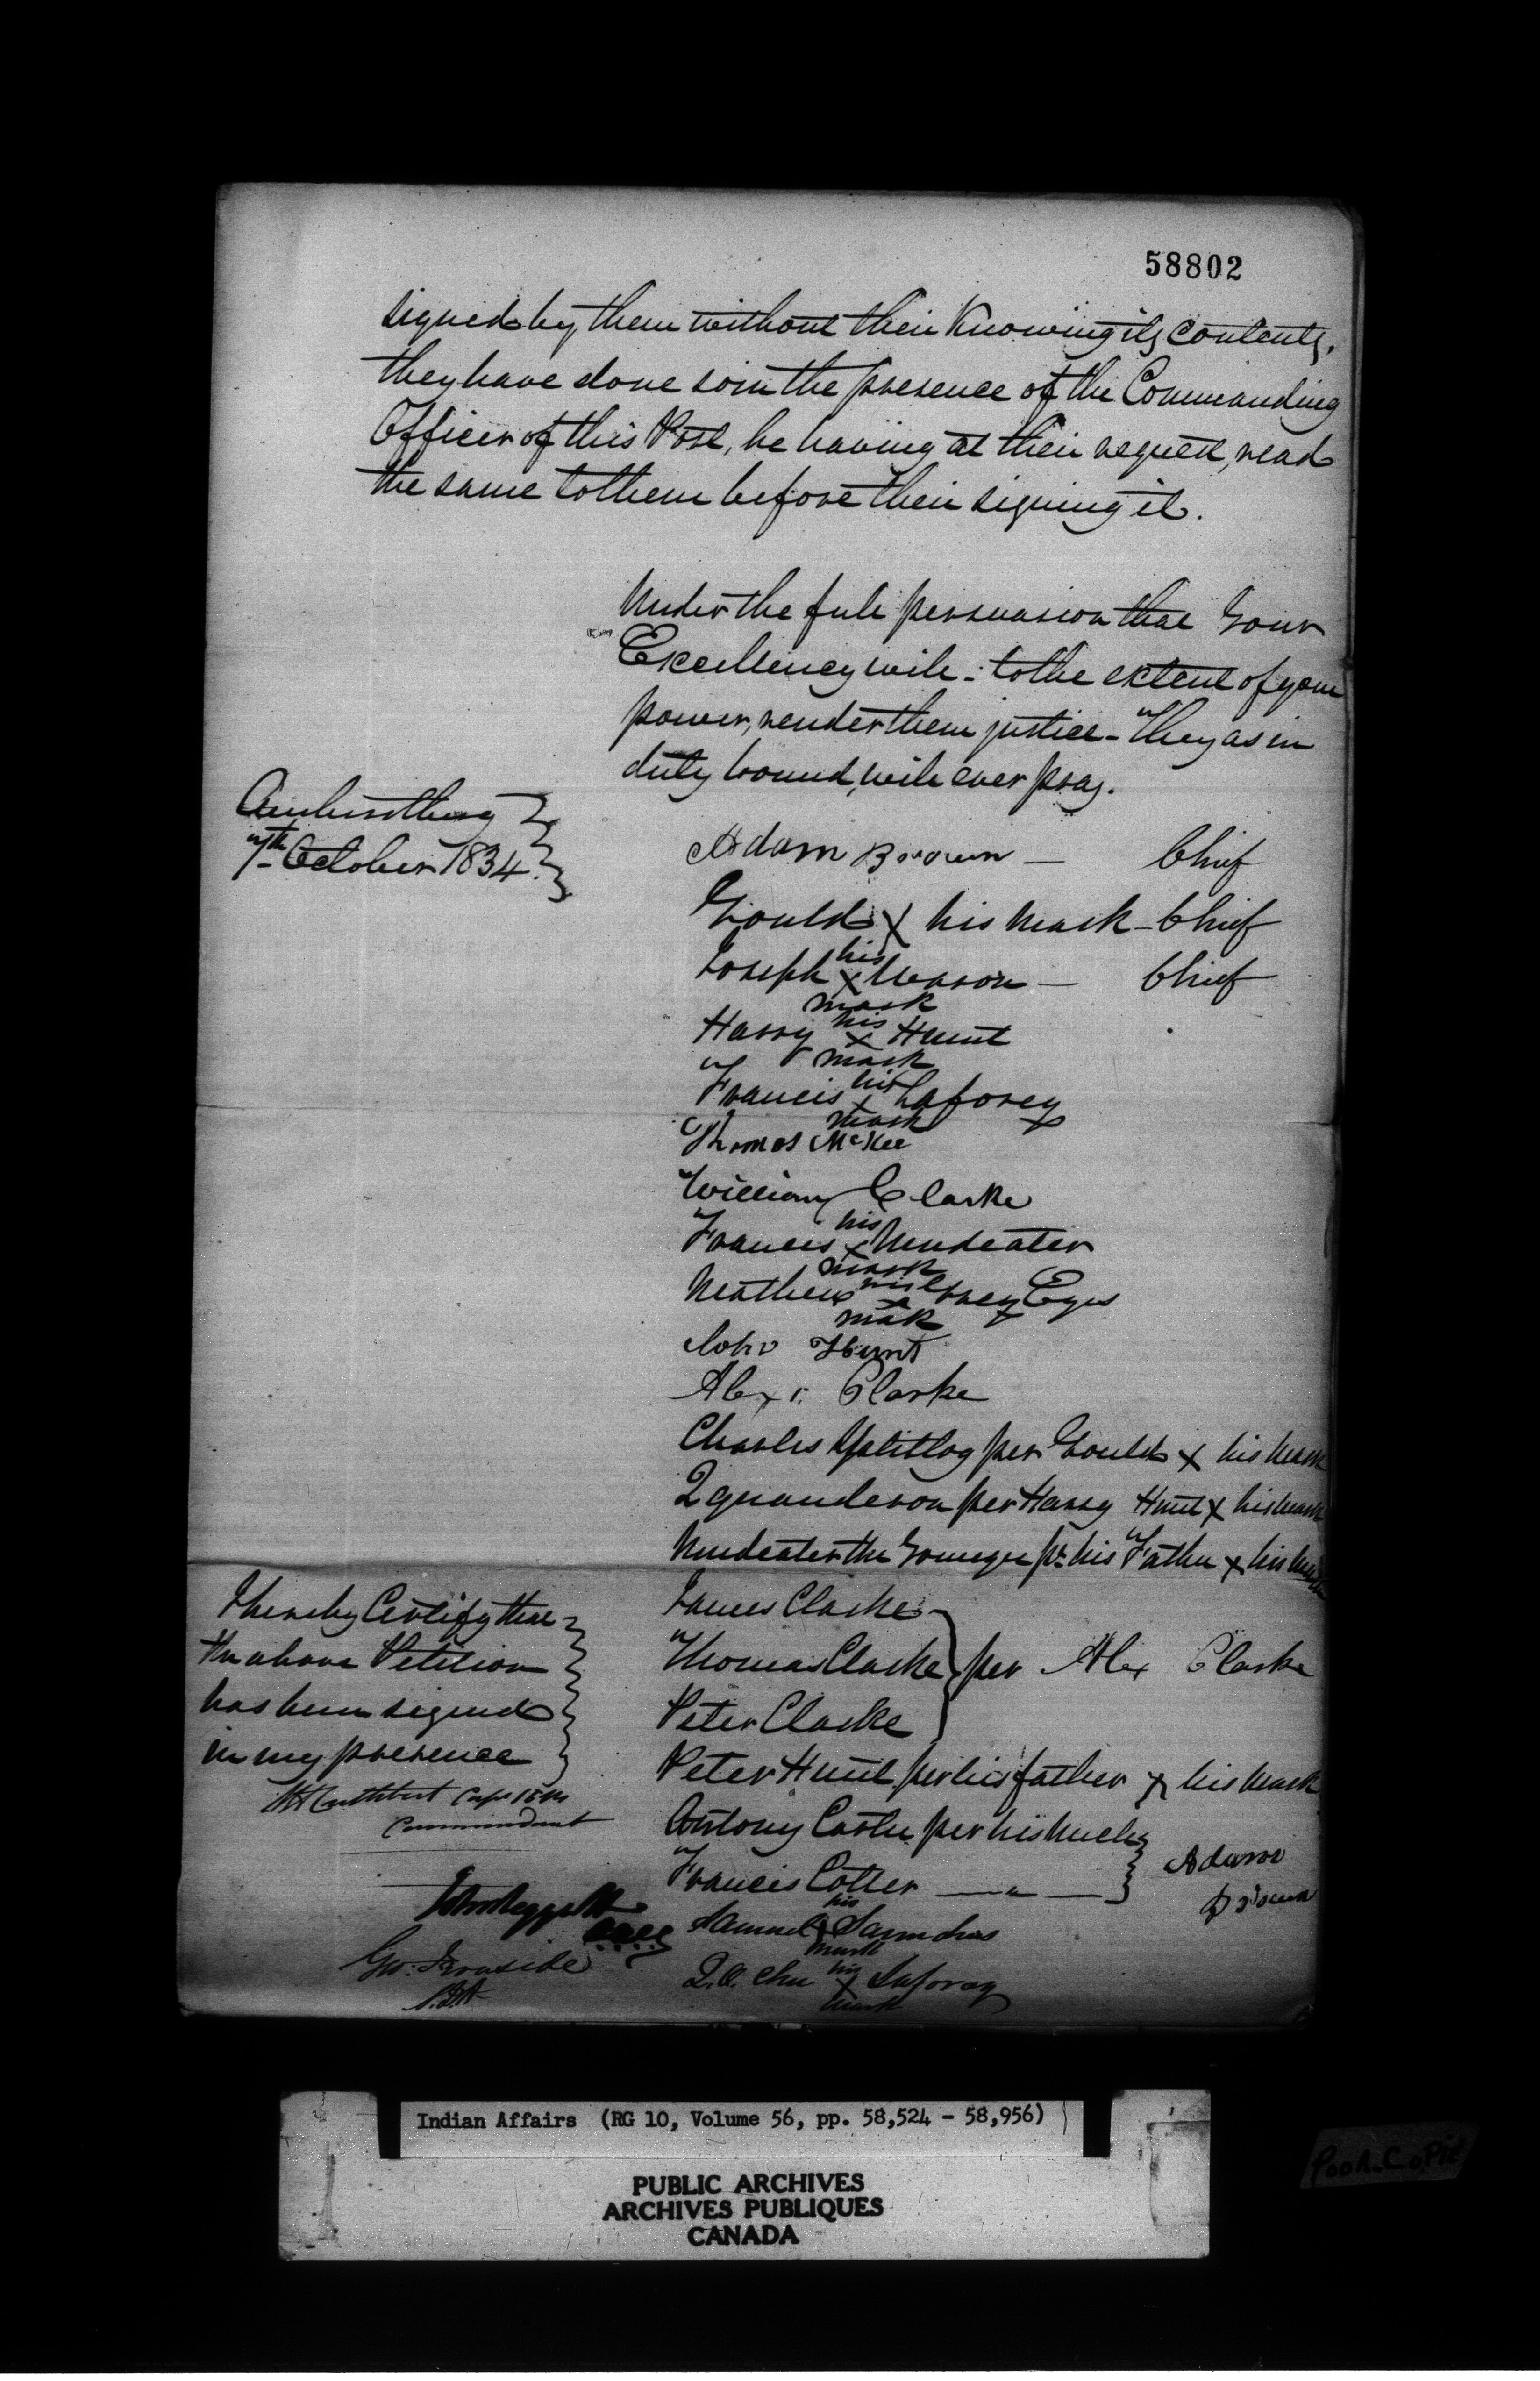 58802
signed by them without their Knowing its contents,
they have done so in the presence of the Commanding
Officer of this Post, he having at their request, read
the same to them before their signing it.
Under the full persuasion that Your
Excellency will - to the extent of your
power, render them justice - They as in
duty bound, will ever pray.
Amherstburg
7th October 1834.
Adam Brown — Chief
Gould X his mark - Chief
Joseph his X mark Warrow — Chief
Harry his X mark Hunt
Francis his X mark Laforey
Thomas McKee
William Clarke
Francis his X mark Mudeater
Mathew his X mark Grey Eyes
John Hunt
Alexr. Clarke
Charles Splitlog per Gould X his mark
Quanderon per Harry Hunt X his mark
Mudeater the Younger pr. his Father X his mark
James Clarke
Thomas Clarke per Alex Clarke
Peter Clarke
Peter Hunt per his father X his mark
Antony Cotter per his Uncle
Francis Cotter — " — Adam Brown
Samuel his X mark Saunders
his X mark Laforey
I hereby Certify that
the above Petition
has been signed
in my presence
Cuthbert Capt 15th
Commandant
Geo: Ironside
S.I.A
Indian Affairs (RG 10, Volume 56, pp. 58,524 - 58,956)
PUBLIC ARCHIVES
ARCHIVES PUBLIQUES
CANADA